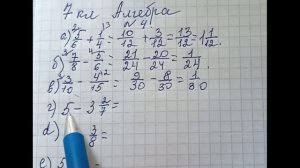 7 кл Алгебра
№4
а) 5/6 + 1/4 = 10/12 + 3/12 = 13/12 = 1 1/12.
б) 7/8 - 5/6 = 21/24 - 20/24 = 1/24.
в) 3/10 - 4/15 = 9/30 - 8/30 = 1/30
г) 5 - 3 2/7 =
d) 3/8 =
е) 5